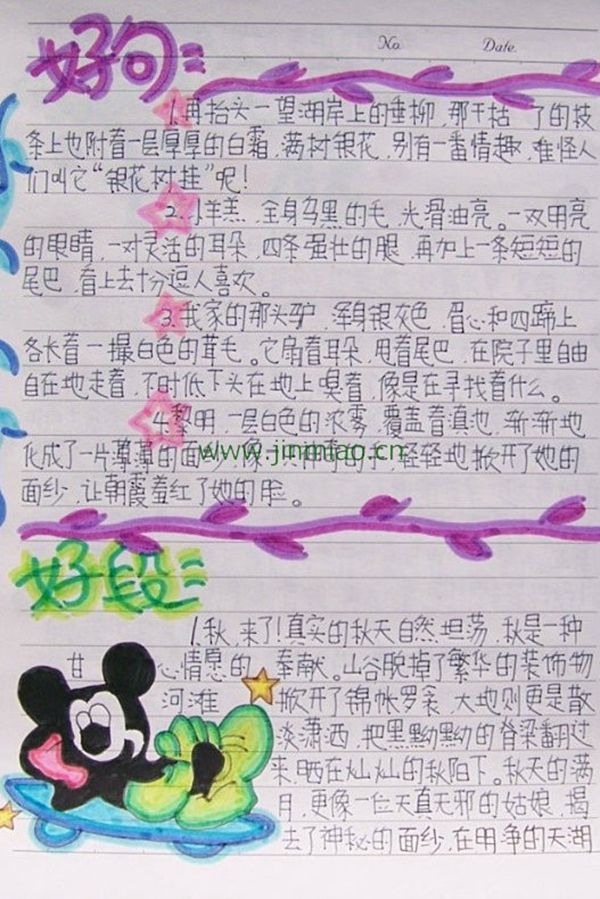 No.
Date.
好句
1.再抬头一望湖岸上的垂柳,那干枯了的枝
条上也附着一层厚厚的白霜,满树银花,别有一番情趣,难怪人
们叫它“银花树挂”呢!
2.小羊羔,全身乌黑的毛,光滑油亮。一双明亮
的眼睛,一对灵活的耳朵,四条强壮的腿,再加上一条短短的
尾巴,看上去十分逗人喜欢。
3.我家的那头驴,浑身银灰色,眉心和四蹄上
各长着一撮白色的茸毛。它扇着耳朵,甩着尾巴,在院子里自由
自在地走着,不时低下头在地上嗅着,像是在寻找着什么。
4.黎明,一层白色的浓雾,覆盖着滇池,渐渐地
化成了一片薄薄的面纱,像一只神奇的手,轻轻地掀开了她的
www.jinmiao.cn
面纱,让朝霞羞红了她的脸。
好段
1.秋,来了!真实的秋天自然坦荡,秋是一种
甘心情愿的奉献。山谷脱掉了繁华的装饰物
河滩掀开了锦帐罗衾,大地则更是散
淡潇洒,把黑黝黝的脊梁翻过
来,晒在灿灿的秋阳下。秋天的满
月,更像一位天真无邪的姑娘,揭
去了神秘的面纱,在明净的天湖